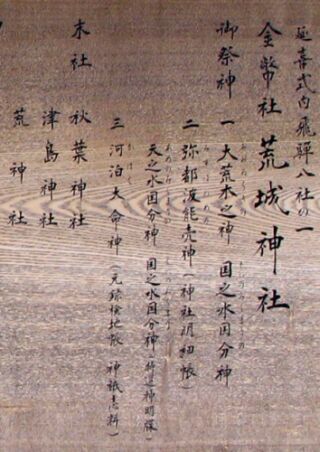 延喜式内飛騨八社の一
金幣社 荒城神社
御祭神 一 大荒木之神 国之水国分神
二 弥都波能売神(神社明細帳)
天之水国分神 国之水国分神(斐太神明牒)
三 河泊大命神(元録検地帳 神祇志料)
末社 秋葉神社
津島神社
荒神社